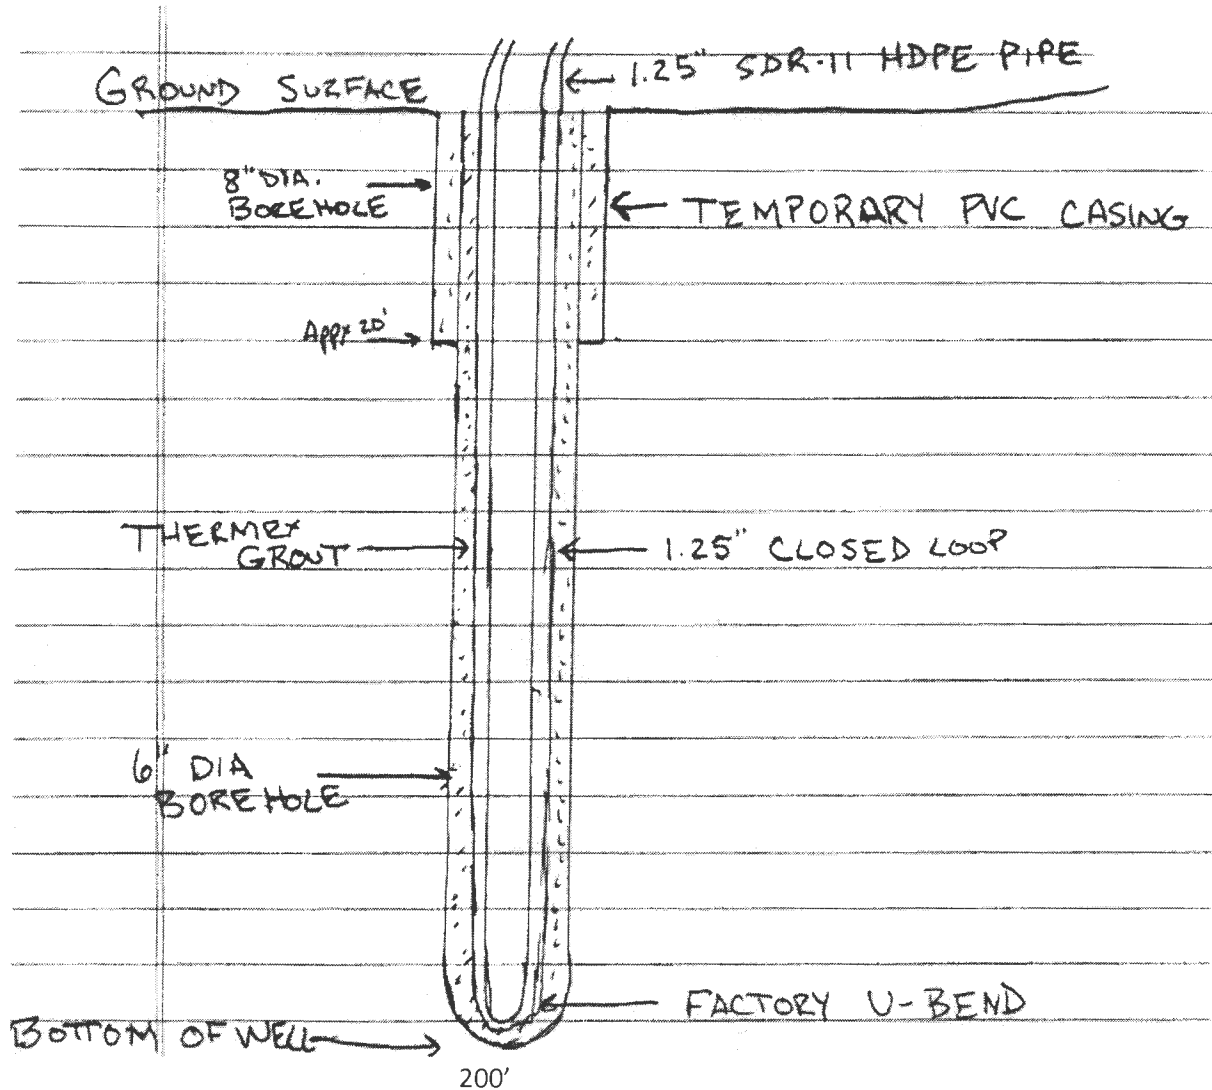 1.25" SDR-11 HDPE PIPE
GROUND SURFACE
8" DIA.
BOREHOLE
TEMPORARY PVC CASING
Appx 20'
THERMEX
GROUT
1.25" CLOSED LOOP
6" DIA
BOREHOLE
FACTORY U-BEND
BOTTOM OF WELL
200'